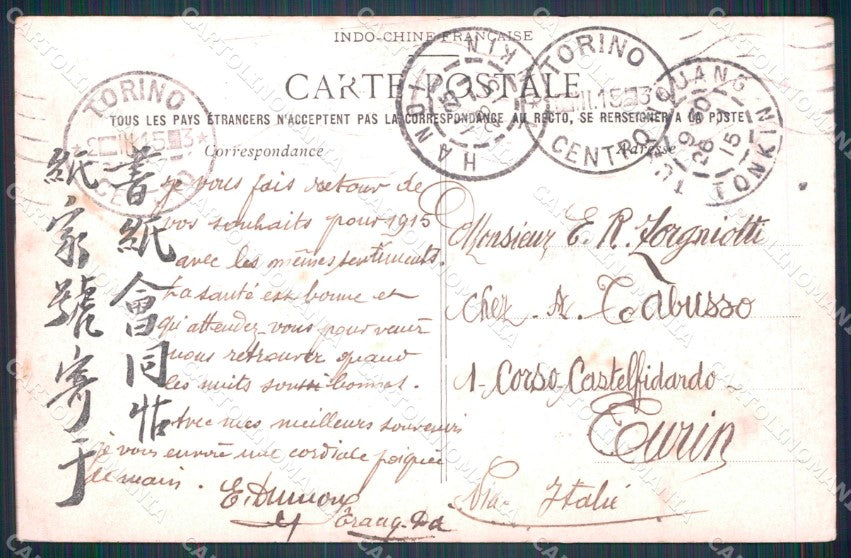 INDO-CHINE FRANÇAISE
CARTE POSTALE
TOUS LES PAYS ÉTRANGERS N'ACCEPTENT PAS LA CORRESPONDANCE AU RECTO, SE RENSEIGNER A LA POSTE
Correspondance
Adresse
TORINO
CENTRO
HANOI
TONKIN
TORINO
CENTRO
QUANG
TONKIN
書紙會同
紙家號寄于
Je vous fais retour de
vos souhaits pour 1915
avec les mêmes sentiments.
La santé est bonne et
qu'attendez vous pour venir
nous retrouver quand
les nuits sont bonnes.
Avec mes meilleurs souvenirs
je vous envoie une cordiale poignée
de main.
E. Dumont
Monsieur E. R. Zorgniotti
chez A. Tabusso
1 - Corso Castelfidardo -
Turin
Italie
CARTOLINOMANIA